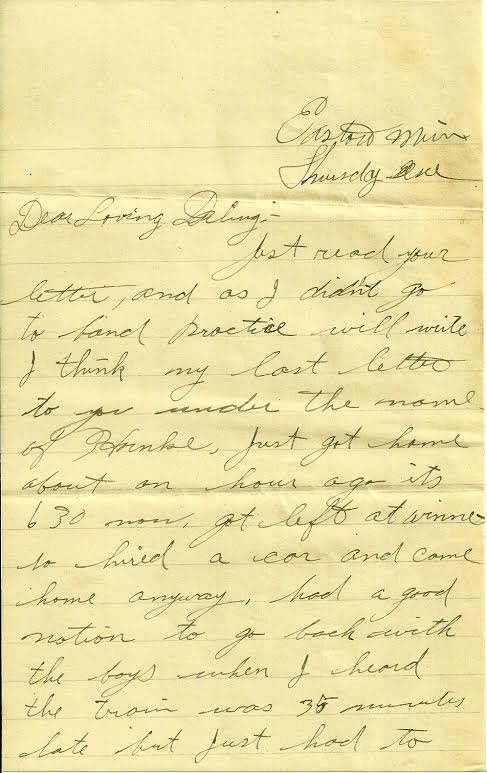 Easton Minn
Thursday Eve
Dear Loving Darling;-
Just read your
letter, and as I didnt go
to band practice will write
I think my last letter
to you under the name
of Hainke, Just got home
about an hour ago its
6 30 now, got left at winne-
so hired a car and come
home anyway, had a good
notion to go back with
the boys when I heard
the train was 35 minutes
late but just had to